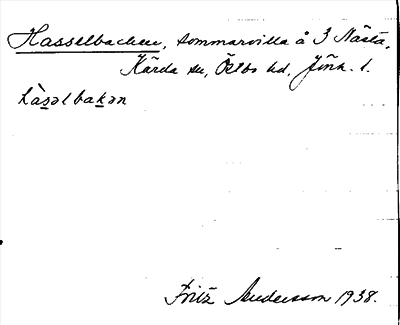 Hasselbacken, sommarvilla å 3 Nästa,
Kärda sn, Östbo hd, Jönk. l.
hàsəlbakən
Fritz Andersson 1938.